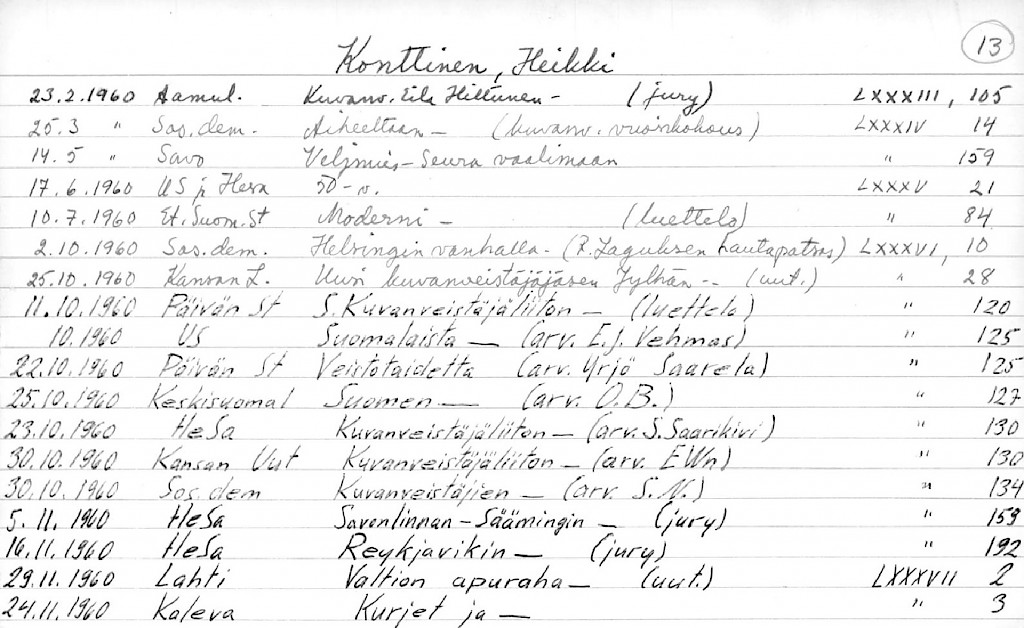 13
Konttinen, Heikki
23.2.1960 Aamul. Kuvanv. Eila Hiltunen - (jury) LXXXIII, 105
25.3 " Sos.dem. Aiheeltaan - (kuvanv. vuosikokous) LXXXIV 14
14.5 " Savo Veljmies-Seura vaalimaan " 159
17.6.1960 US ja Hesa 50-v. LXXXV 21
10.7.1960 Et.Suom.St Moderni - (luettelo) " 84
2.10.1960 Sos.dem. Helsingin vanhalla - (R. Laguksen hautapatsas) LXXXVI, 10
25.10.1960 Kansan L. Uusi kuvanveistäjäjäsen Jylhän -- (uut.) " 28
11.10.1960 Päivän St S.Kuvanveistäjäliiton - (luettelo) " 120
10.1960 US Suomalaista - (arv. E.J. Vehmas) " 125
22.10.1960 Päivän St Veistotaidetta (arv. Yrjö Saarela) " 125
25.10.1960 Keskisuomal Suomen - (arv. O.B.) " 127
23.10.1960 HeSa Kuvanveistäjäliiton - (arv. S.Saarikivi) " 130
30.10.1960 Kansan Uut Kuvanveistäjäliiton - (arv. EWn) " 130
30.10.1960 Sos.dem Kuvanveistäjien - (arv. S.N.) " 134
5.11.1960 HeSa Savonlinnan-Säämingin - (jury) " 159
16.11.1960 HeSa Reykjavikin - (jury) " 192
29.11.1960 Lahti Valtion apuraha - (uut.) LXXXVII 2
24.11.1960 Kaleva Kurjet ja - " 3